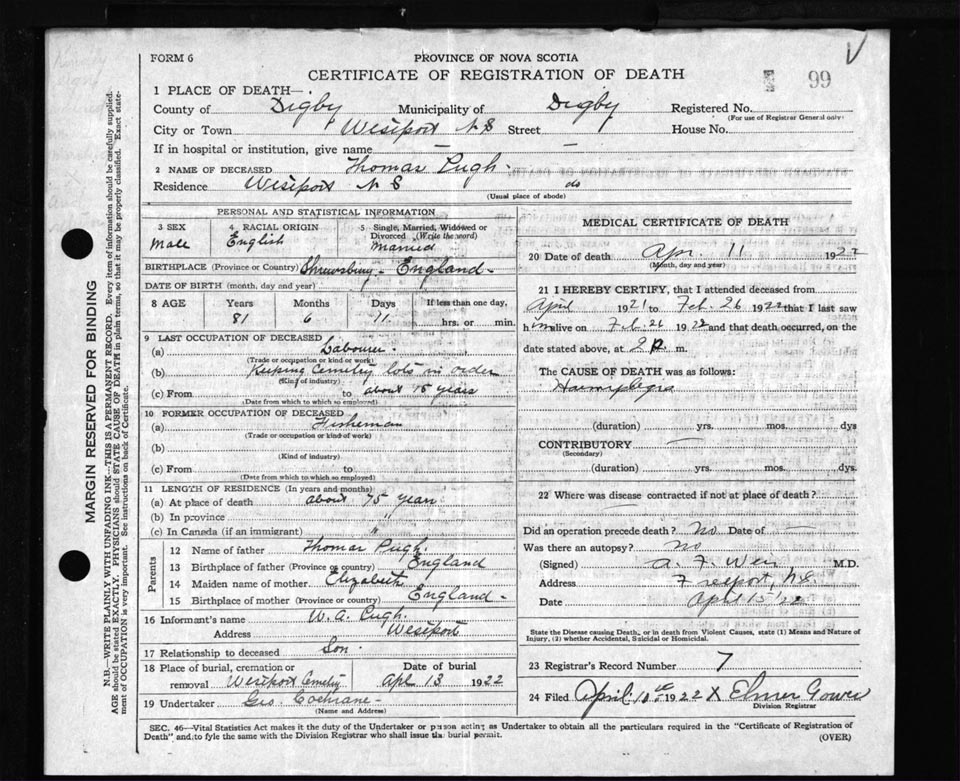 FORM 6
PROVINCE OF NOVA SCOTIA
CERTIFICATE OF REGISTRATION OF DEATH
99
1 PLACE OF DEATH—
County of Digby Municipality of Digby Registered No.
(For use of Registrar General only)
City or Town Westport N S Street House No.
If in hospital or institution, give name — —
2 NAME OF DECEASED Thomas Pugh.
Residence Westport N S do
(Usual place of abode)
PERSONAL AND STATISTICAL INFORMATION
3 SEX 4 RACIAL ORIGIN 5 Single, Married, Widowed or Divorced (Write the word)
Male English Married
BIRTHPLACE (Province or Country) Shrewsbury - England -
DATE OF BIRTH (month, day and year)
8 AGE Years Months Days If less than one day,
81 6 11 hrs. or min.
9 LAST OCCUPATION OF DECEASED
(a) Labourer.
(Trade or occupation or kind of work)
(b) Keeping Cemetry lots in order
(Kind of industry)
(c) From to about 15 years
(Date from which to which so employed)
10 FORMER OCCUPATION OF DECEASED
(a) Fisherman
(Trade or occupation or kind of work)
(b)
(Kind of industry)
(c) From to
(Date from which to which so employed)
11 LENGTH OF RESIDENCE (In years and months)
(a) At place of death about 75 years
(b) In province "
(c) In Canada (if an immigrant) "
Parents
12 Name of father Thomas Pugh.
13 Birthplace of father (Province or country) England
14 Maiden name of mother Elizabeth
15 Birthplace of mother (Province or Country) England -
16 Informant's name W. A. Pugh.
Address Westport
17 Relationship to deceased Son.
18 Place of burial, cremation or removal Westport Cemetry
Date of burial Apl 13 1922
19 Undertaker Geo. Cochrane
(Name and Address)
MEDICAL CERTIFICATE OF DEATH
20 Date of death Apr. 11 1922
(Month, day and year)
21 I HEREBY CERTIFY, that I attended deceased from
April 1921 to Feb. 26 1922 that I last saw
him alive on Feb. 26 1922 and that death occurred, on the
date stated above, at 2 p. m.
The CAUSE OF DEATH was as follows:
(duration) yrs. mos. dys
CONTRIBUTORY —
(Secondary)
(duration) yrs. mos. dys.
22 Where was disease contracted if not at place of death?
Did an operation precede death? No Date of —
Was there an autopsy? No
(Signed) A. F. Weir M.D.
Address Freeport, N.S.
Date April 15 '22
State the Disease causing Death, or in death from Violent Causes, state (1) Means and Nature of
Injury, (2) whether Accidental, Suicidal or Homicidal.
23 Registrar's Record Number 7
24 Filed April 1922 X Elmer Gower
Division Registrar
SEC. 46—Vital Statistics Act makes it the duty of the Undertaker or person acting as Undertaker to obtain all the particulars required in the "Certificate of Registration of
Death" and to fyle the same with the Division Registrar who shall issue the burial permit.
(OVER)
MARGIN RESERVED FOR BINDING
N.B.—WRITE PLAINLY WITH UNFADING INK—THIS IS A PERMANENT RECORD. Every item of information should be carefully supplied.
AGE should be stated EXACTLY. PHYSICIANS should STATE CAUSE OF DEATH in plain terms, so that it may be properly classified. "Exact state-
ment of OCCUPATION is very important. See instructions on back of Certificate.